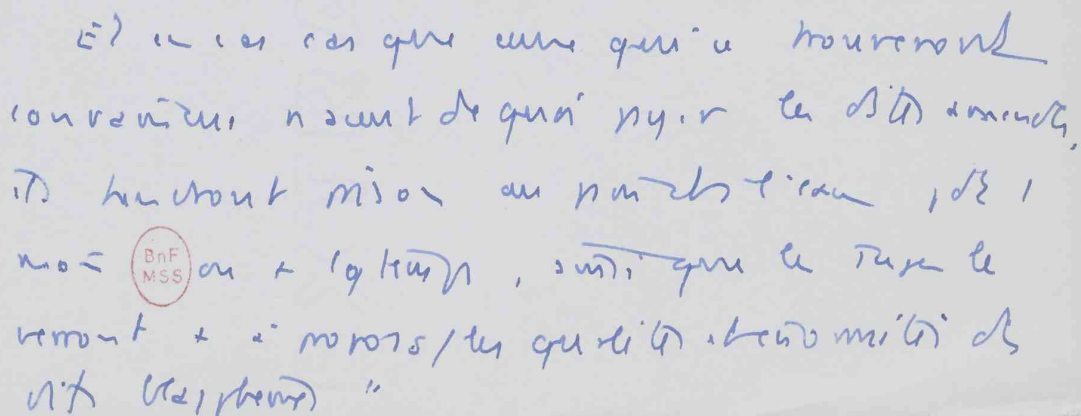 Et en cas que ceux qui se trouveront
convaincus n'aient de quoi payer les dites amendes,
ils tiendront prison au pain et à l'eau, de 1
mois BnF MSS ou + lgtemps, ainsi que les Juges le
verront + à propos / les qualités et énormités des
dits blasphèmes "